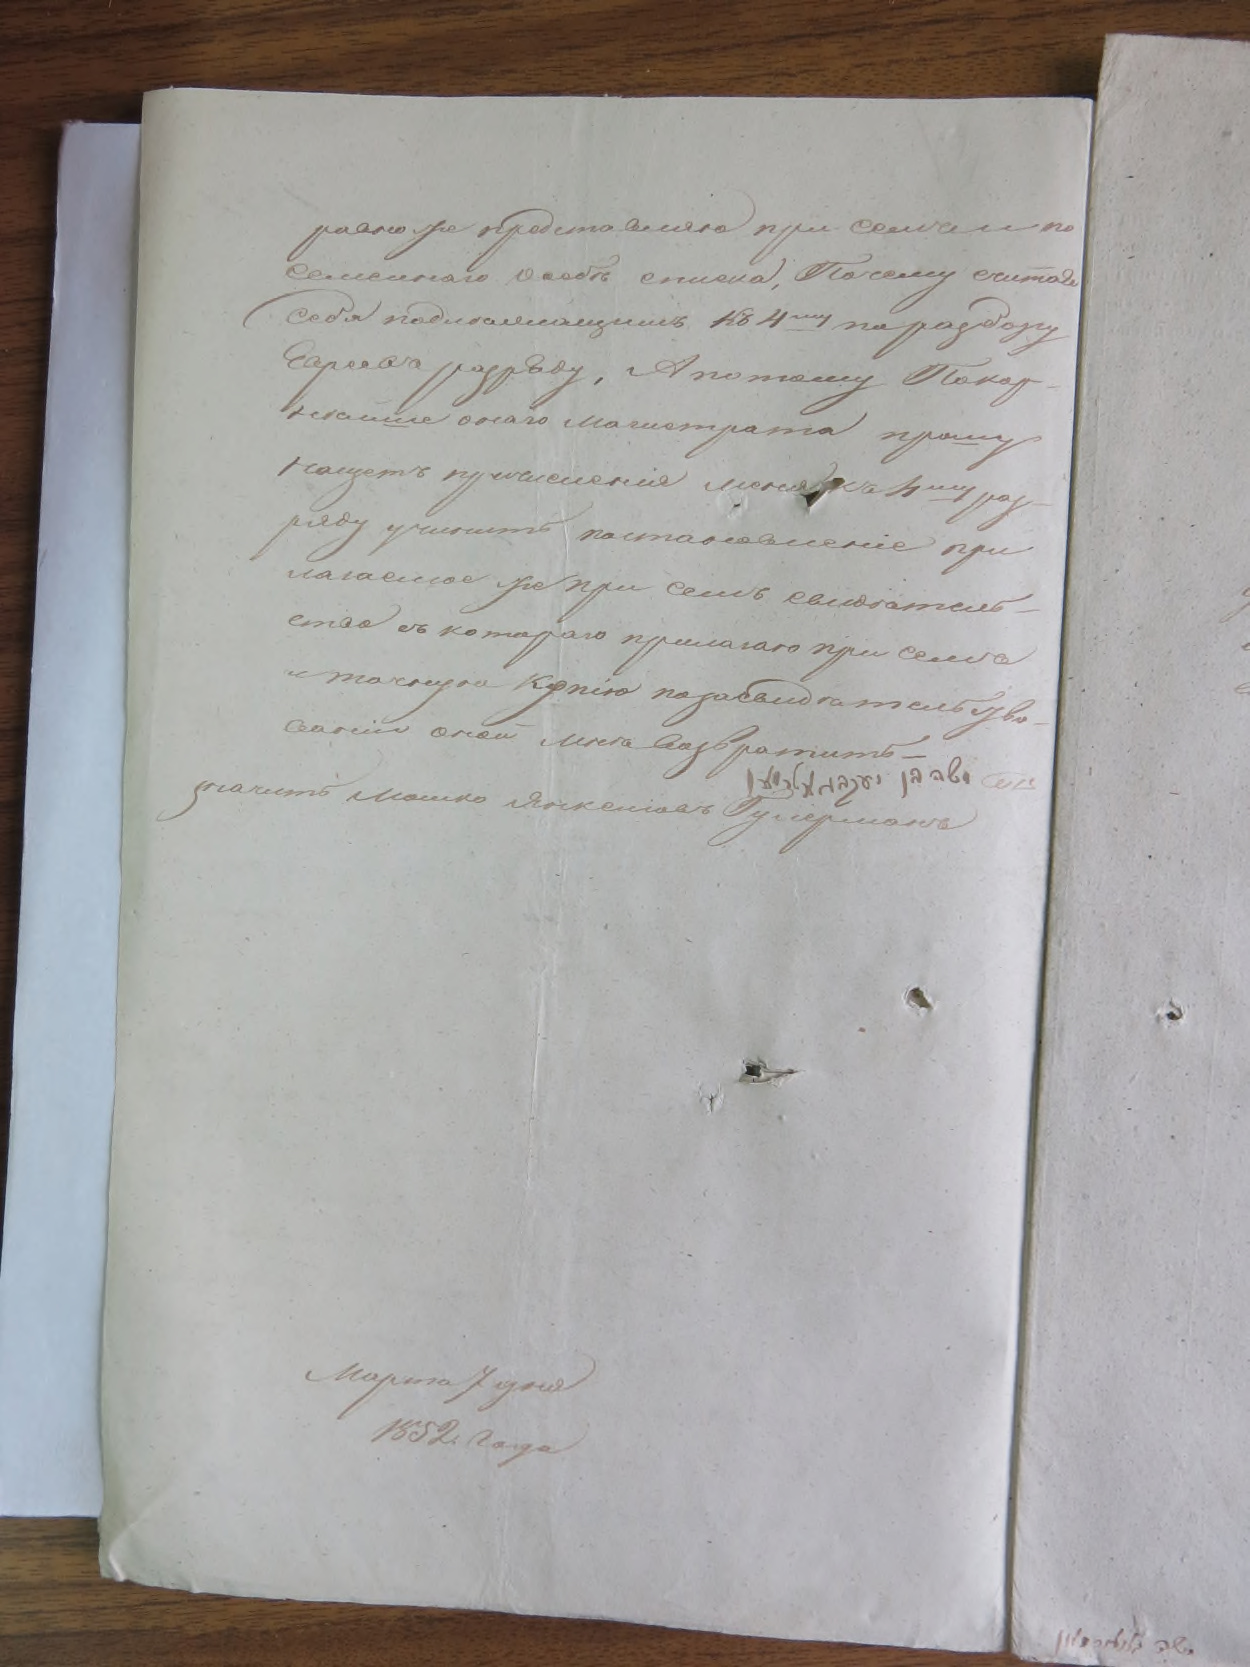 равно же представляю при семъ и по
семейнаго особъ списка, Почему считая
себя подлежащимъ къ 4му по разбору
Евреевъ разряду, А потому Покор-
нейше онаго Магистрата прошу
нащетъ причисления меня къ 4му раз-
ряду учинить постановленіе при
лагаемое же при семъ свидѣтель-
ство съ котораго прилагаю при семъ
и точную Копію позасвидѣтельство-
ваніи оной мнѣ возвратить —
משה בן יעקב
значитъ Мошко Янкелевъ Гулерманъ
Марта 7 дня
1852 года
משה